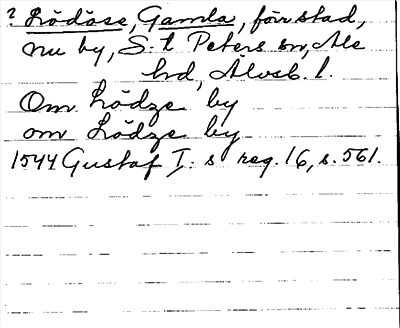 ? Lödöse, Gamla, förr stad,
nu by, S:t Peters sn, Ale
hd, Älvsb. l.
Om Lödze by
om Lödze by
1544 Gustaf I:s reg. 16, s. 561.